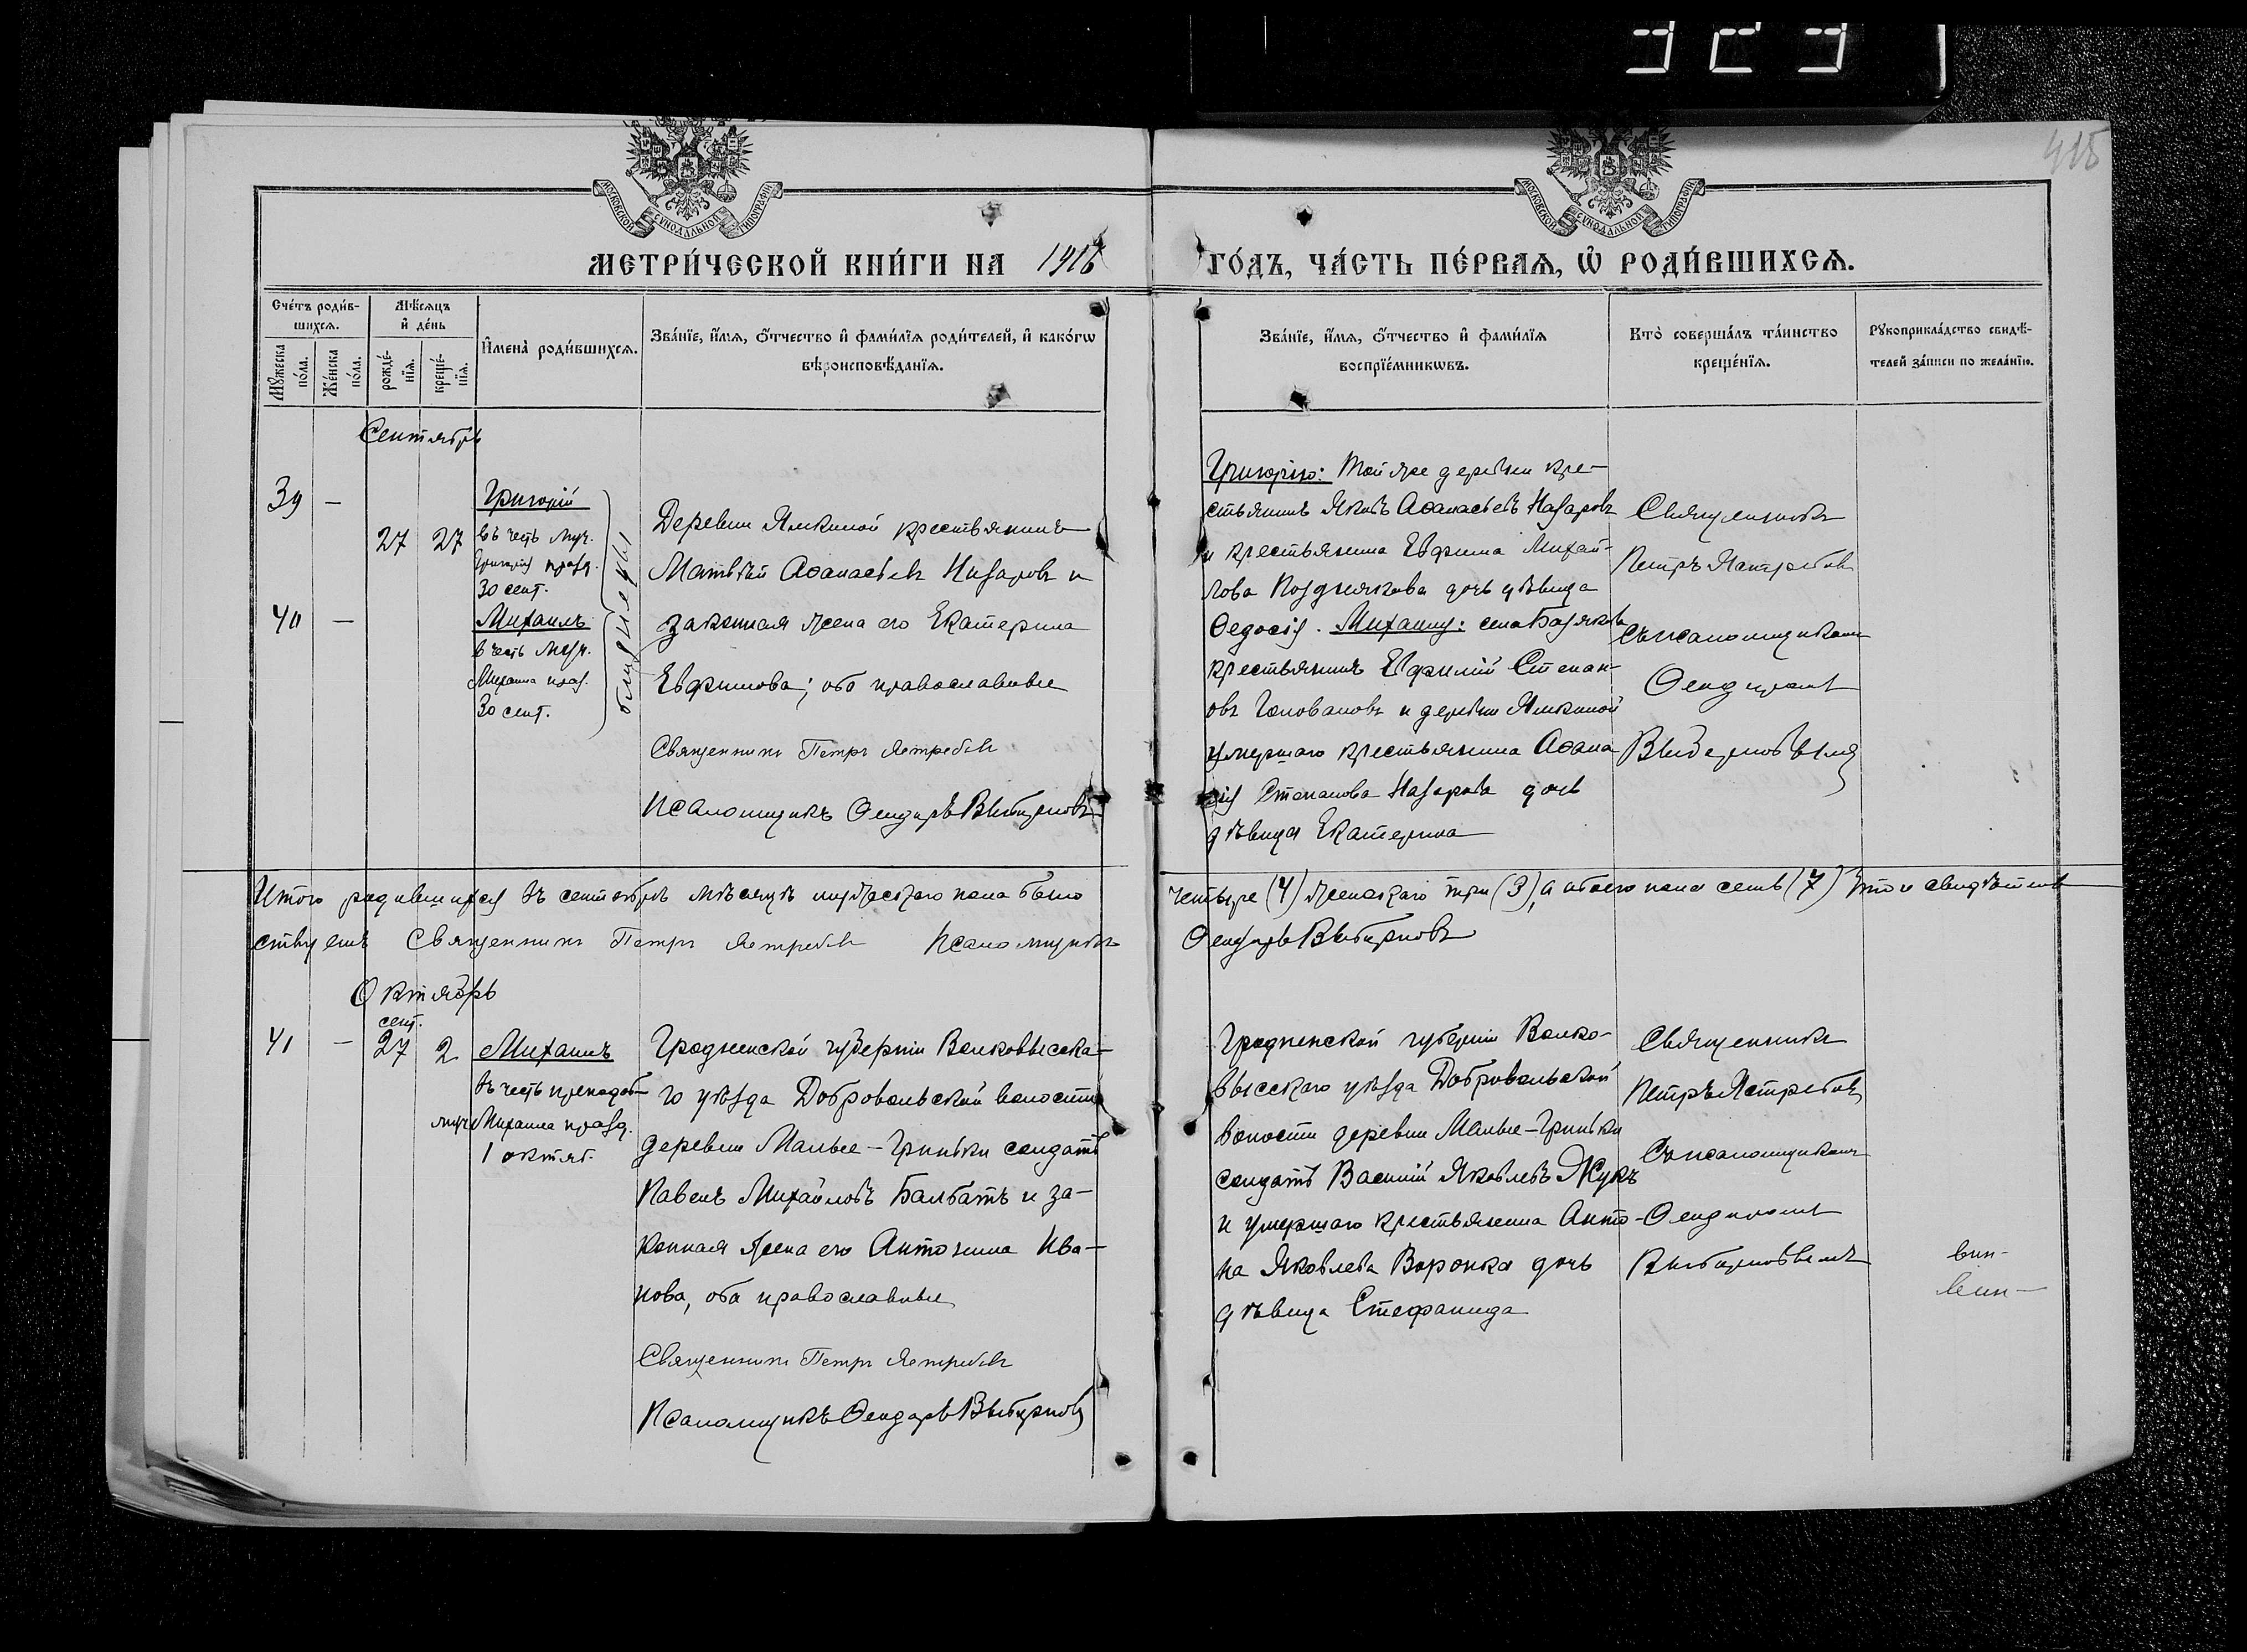 323
415
МОСКОВСКОЙ СѴНОДАЛЬНОЙ ТИПОГРАФІИ
МОСКОВСКОЙ СѴНОДАЛЬНОЙ ТИПОГРАФІИ
МЕТРИ́ЧЕСКОЙ КНИ́ГИ НА 1916
ГО́ДЪ, ЧА́СТЬ ПЕ́РВАѦ, Ѡ҆ РОДИ́ВШИХСѦ.
Сче́тъ роди́в-
шихсѧ.
Мѣ́сѧцъ
и҆ де́нь
Мꙋ́жеска по́ла.
Же́нска по́ла.
рожде́-
нїѧ.
креще́-
нїѧ.
И҆мена̀ роди́вшихсѧ.
Зва́нїе, и҆́мѧ, ѻ҆́тчество и҆ фами́лїѧ роди́телей, и҆ како́гѡ
вѣроисповѣ́данїѧ.
Зва́нїе, и҆́мѧ, ѻ҆́тчество и҆ фами́лїѧ
воспрїе́мникѡвъ.
Кто̀ соверша́лъ та́инство
креще́нїѧ.
Рꙋкоприкла́дство свидѣ́-
телей за́писи по жела́нїю.
Сентябрь
39 –
27 27
Григорій
въ честь муч.
Григорія празд.
30 сент.
40 –
Михаилъ
в честь муч.
Михаила праз.
30 сент.
близнецы
Деревни Ямкиной крестьянинъ
Матвѣй Аѳанасьевъ Назаровъ и
законная жена его Екатерина
Евфимова; оба православные
Священникъ Петръ Ястребовъ
Псаломщикъ Ѳеодоръ
Григорію: Той же деревни кре-
стьянинъ Яковъ Аѳанасьевъ Назаровъ
и крестьянина Евфима Михай-
лова Позднякова дочь дѣвица
Ѳедосія. Михаилу: села
крестьянинъ Евфимій Степан-
овъ Головановъ и деревни Ямкиной
умершаго крестьянина Аѳана-
сія Степанова Назарова дочь
дѣвица Екатерина
Священникъ
Петръ Ястребовъ
Съ псаломщикомъ
Ѳеодоромъ
Итого родившихся въ сентябрѣ мѣсяцѣ мужескаго пола было
четыре (4) женскаго три (3), а обоего пола семь (7) Что и свидѣтель-
ствуемъ Священникъ Петръ Ястребовъ Псаломщикъ
Ѳеодоръ
Октябрь
сент.
41 – 27 2 Михаилъ
въ честь преподоб-
муч. Михаила празд.
1 октяб.
Гродненской губерніи Волковысска-
го уѣзда Добровольской волости
деревни Малые-Гриньки солдатъ
Павелъ Михайловъ Балбатъ и за-
конная жена его Антонина Ива-
нова, оба православные
Священникъ Петръ Ястребовъ
Псаломщикъ Ѳеодоръ
Гродненской губерніи Волко-
высскаго уѣзда Добровольской
волости деревни Малые-Гриньки
солдатъ Василій Яковлевъ Жукъ
и умершаго крестьянина Анто-
на Яковлева Воронка дочь
дѣвица Стефанида
Священникъ
Петръ Ястребовъ
Съ псаломщикомъ
Ѳеодоромъ